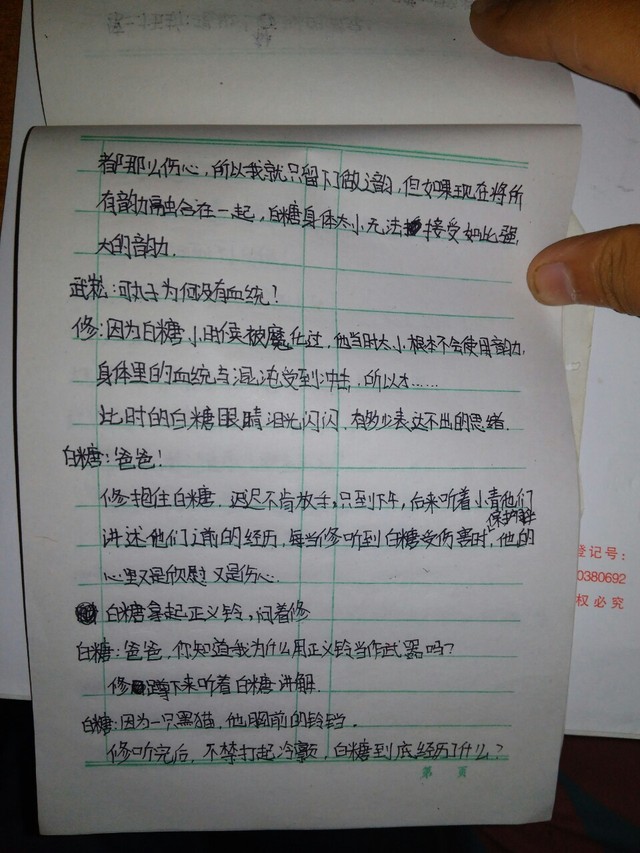 都那么伤心,所以我就只留下了做这韵,但如果现在将所
有韵力融合在一起,白糖身体太小无法接受如此强
大的韵力.
武崧:可丸子为何没有血统!
修:因为白糖小时候被魔化过,他当时太小根本不会使用韵力,
身体里的血统与混沌受到冲击,所以才……
此时的白糖眼睛泪光闪闪,有多少表达不出的思绪.
白糖:爸爸!
修抱住白糖,迟迟不肯放手,只到下午,后来听着小青他们
讲述他们之前的经历,每当修听到白糖受伤害时,他的
心里又是欣慰又是伤心.
白糖拿起正义铃,问着修
白糖:爸爸,你知道我为什么用正义铃当作武器吗?
修蹲下来听着白糖讲解.
白糖:因为一只黑猫,他胸前的铃铛.
修听完后,不禁打起冷颤,白糖到底经历了什么?
第 頁
登记号:
0380692
权必究